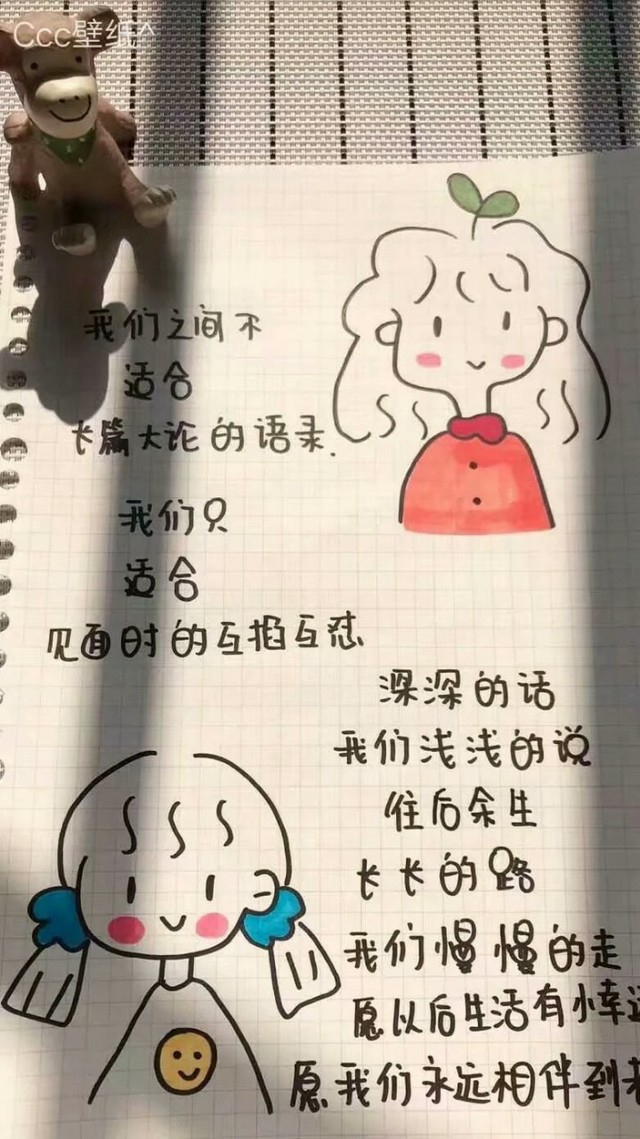 Ccc壁纸^
我们之间不
适合
长篇大论的语录.
我们只
适合
见面时的互掐互怼
深深的话
我们浅浅的说
往后余生
长长的路
我们慢慢的走
愿以后生活有小幸运
愿我们永远相伴到老